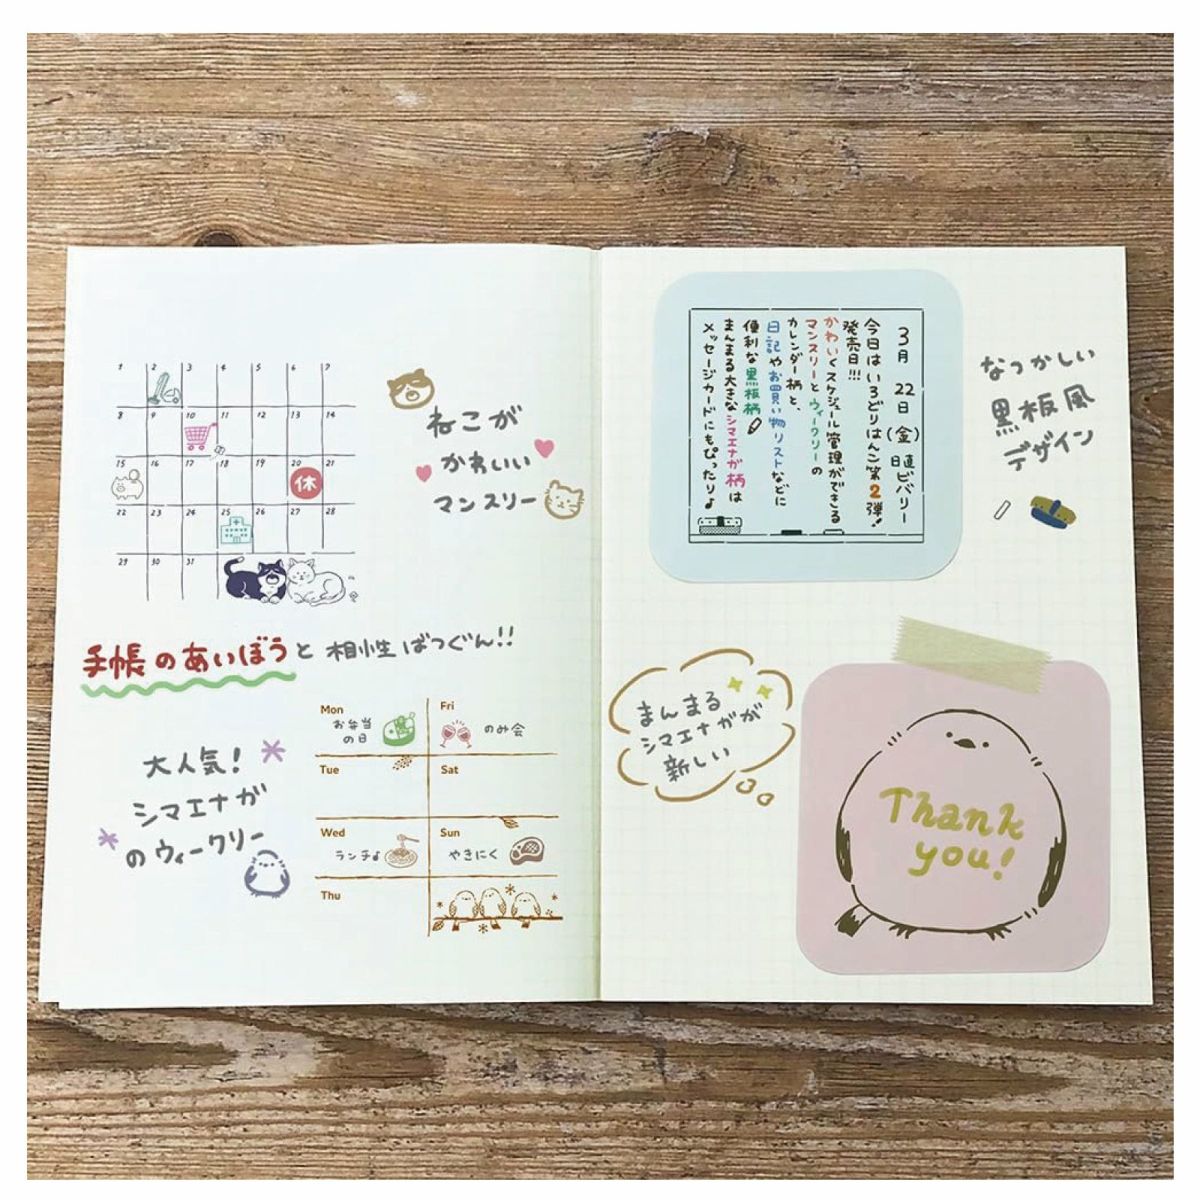 1 2 3 4 5 6 7
8 9 10 11 12 13 14
15 16 17 18 19 20 21
休
22 23 24 25 26 27 28
29 30 31
ねこが
かわいい
マンスリー
手帳のあいぼうと相性ばつぐん!!
大人気!
シマエナガ
のウィークリー
Mon
お弁当
の日
Fri
のみ会
Tue
Sat
Wed
ランチ♪
Sun
やきにく
Thu
3月22日(金)
日直 ビバリー
今日はいろどりはんこ第2弾!
発売日!!!
かわいくスケジュール管理ができる
マンスリーとウィークリーの
カレンダー柄と、
日記やお買い物リストなどに
便利な黒板柄
まんまる大きなシマエナガ柄は
メッセージカードにもぴったり♪
なつかしい
黒板風
デザイン
まんまる
シマエナガが
新しい
Thank
you!